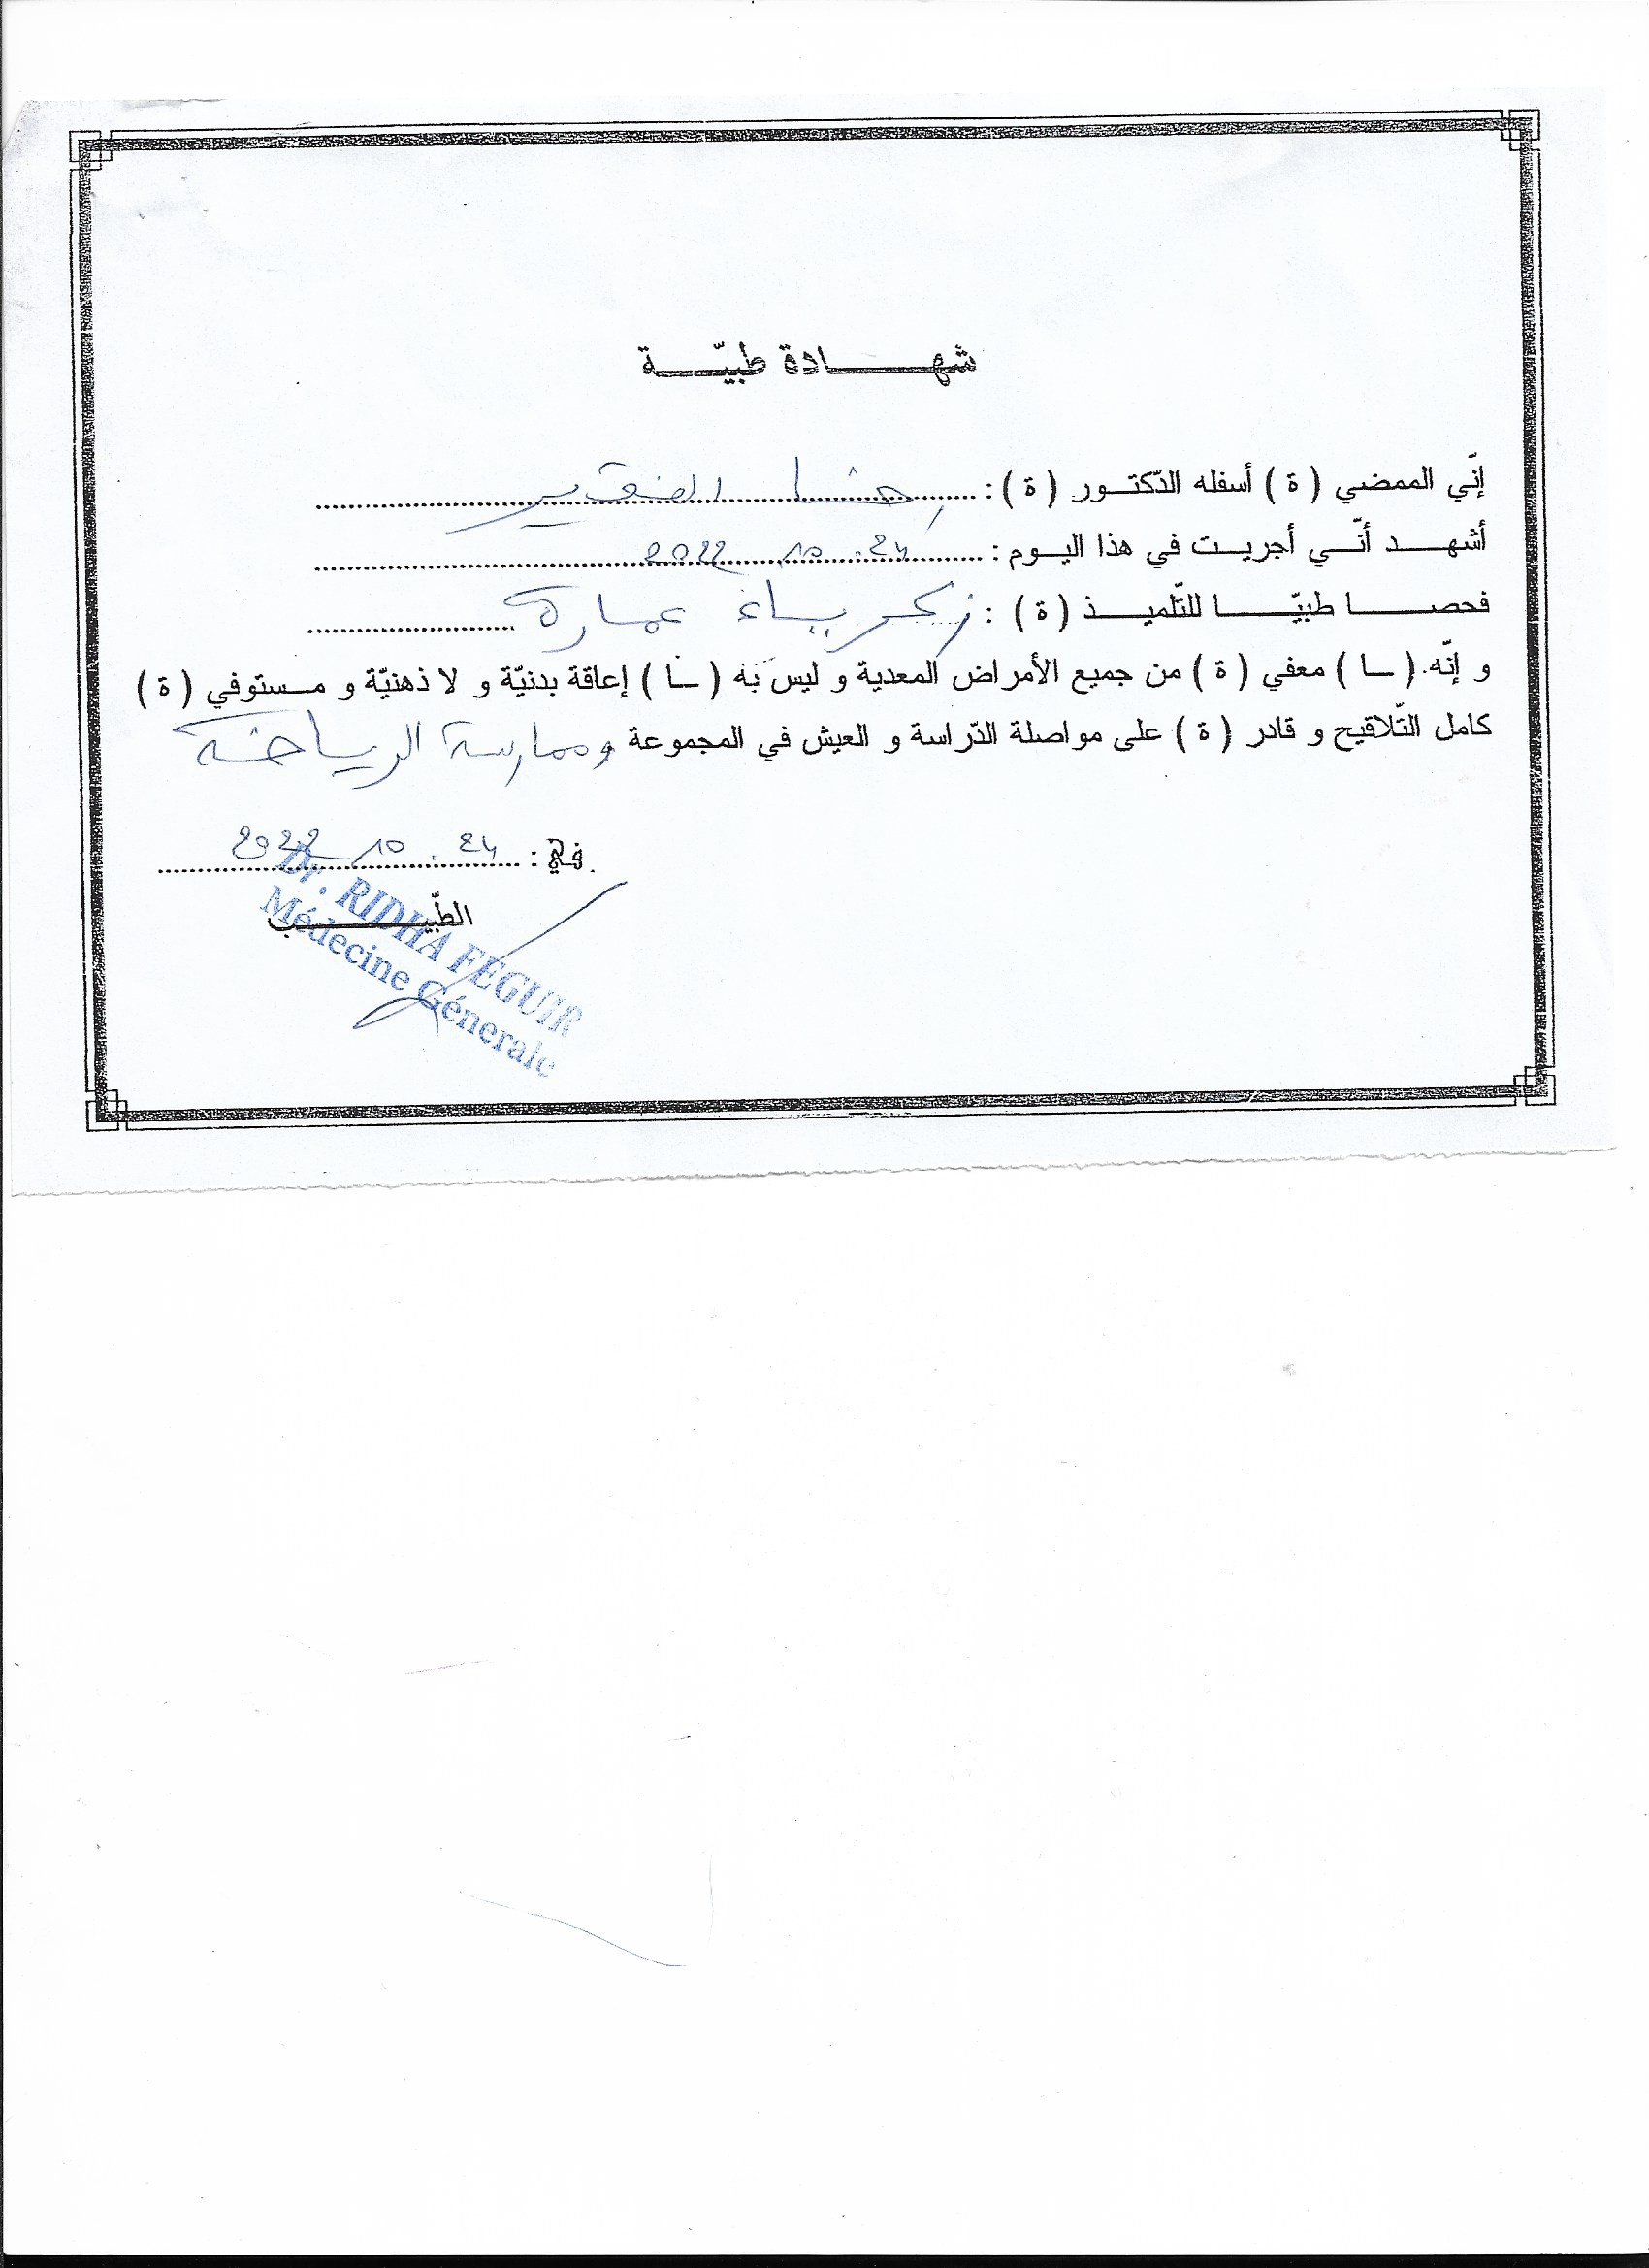 شهادة طبيّة
إنّي الممضي ( ة ) أسفله الدّكتور ( ة ) : رضا الفقير
أشهد أنّي أجريت في هذا اليوم : 24 . 10 . 2022
فحصا طبيّا للتّلميذ ( ة ) : زكرياء عمارة
و إنّه ( ـا ) معفي ( ة ) من جميع الأمراض المعدية و ليس به ( ـا ) إعاقة بدنيّة و لا ذهنيّة و مستوفي ( ة )
كامل التّلاقيح و قادر ( ة ) على مواصلة الدّراسة و العيش في المجموعة وممارسة الرياضة
في : 24 . 10 . 2022
الطّبيب
Dr. RIDHA FEGUIR
Médecine Génerale